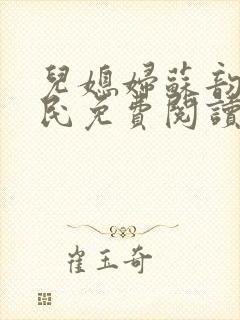 兒媳婦蘇韵
民免費閱讀
崔玉奇